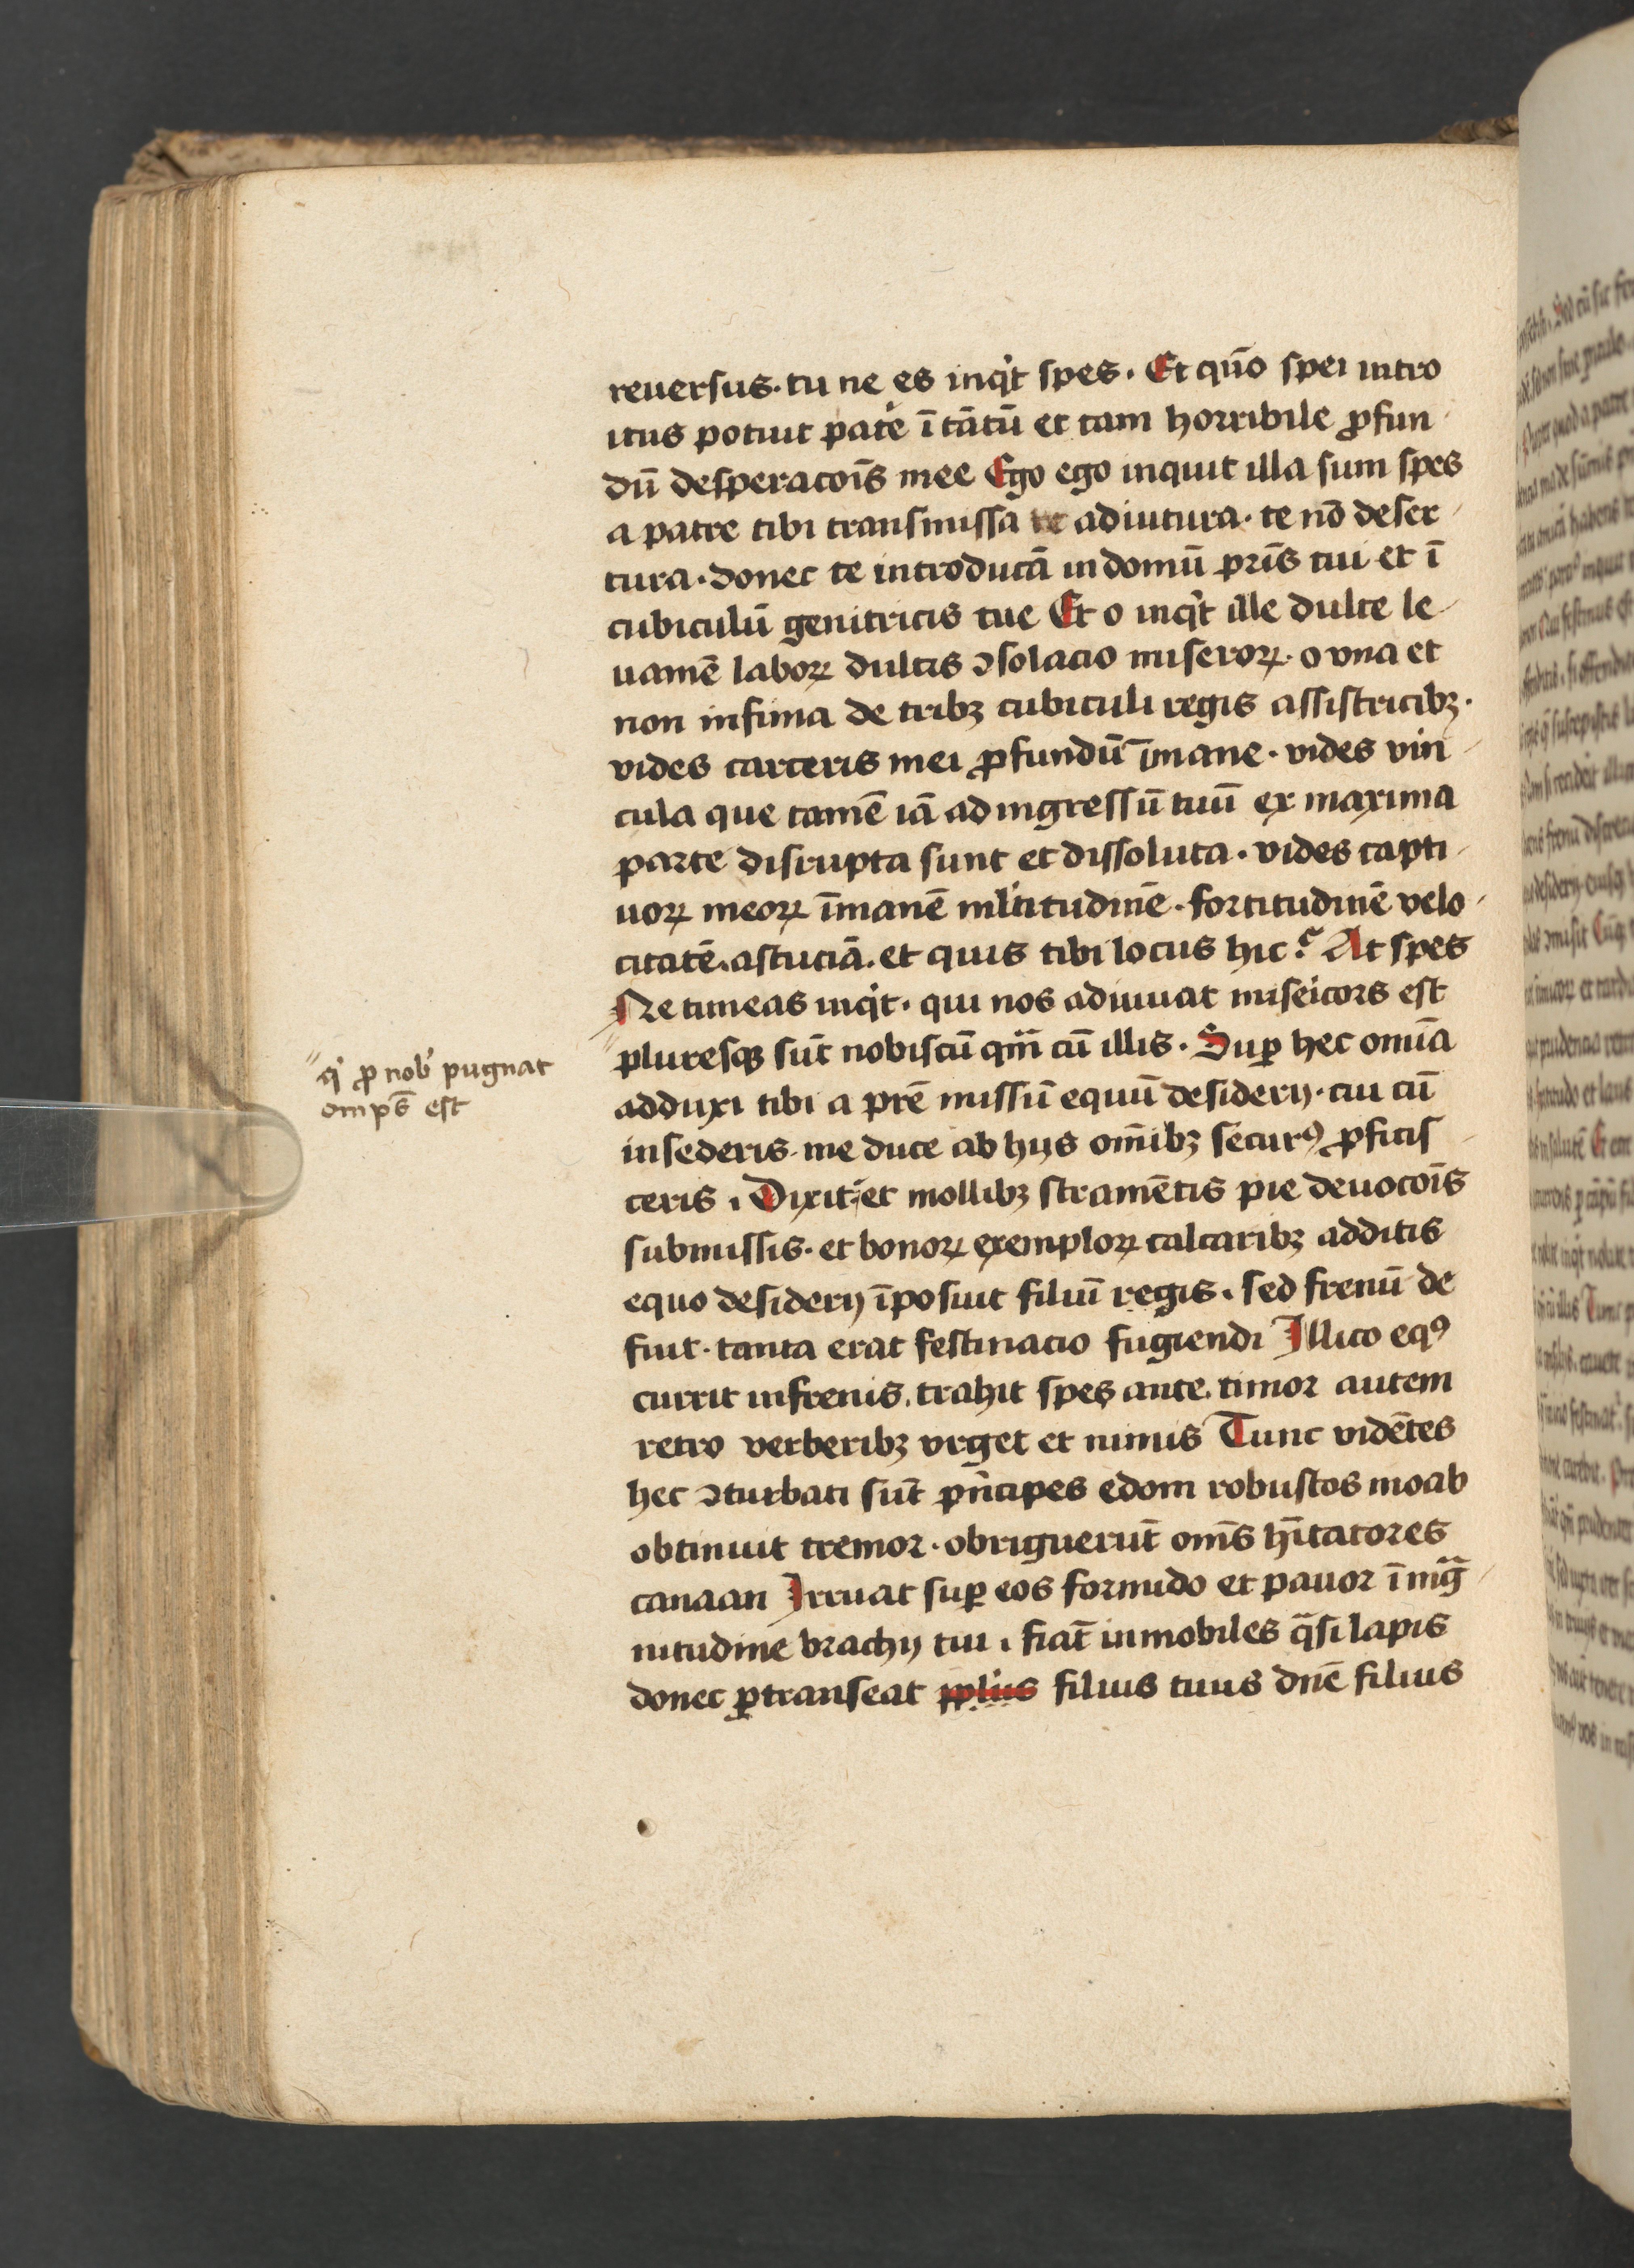 reuersus. tu ne es inqͥt spes. Et quō spei intro
itus potuit patē ī tātū et tam horribile ꝓfun
dū desperacoīs mee Ego ego inquit illa sum spes
a patre tibi transmissa te adiutura. te nō deser
tura. donec te introducā in domū pr̄is tui et ī
cubiculū genitricis tue Et o inqͥt ille dulce le
uamē laboꝝ dulcis ꝯsolacio miseroꝝ. o vna et
non infima de tribꝫ cubiculi regis assistricibꝫ.
vides carceris mei ꝓfundū īmane. vides vin
cula que tamē iā ad ingressū tuū ex maxima
parte disrupta sunt et dissoluta. vides capti
uoꝝ meoꝝ īmanē ml̓titudinē. fortitudinē velo
citatē. astuciā. et quis tibi locus hic? At spes
Ne timeas inqͥt. qui nos adiuuat miseìcors est
"qͥ ꝓ nob̓ pugnat
omp̄s est
pluresqꝫ sūt nobiscū qm̄ cū illis. Suꝑ hec omīa
adduxi tibi a pr̄e missū equū desiderij. cui cū
insederis. me duce ab hijs om̄ibꝫ securꝰ ꝓficis
ceris. Dixit et mollibꝫ stramētis pie deuocoīs
submissis. et bonoꝝ exemploꝝ calcaribꝫ additis
equo desiderij īposuit filiū regis. sed frenū de
fuit. tanta erat festinacio fugiendi Illico eqꝰ
currit infrenis. trahit spes ante. timor autem
retro verberibꝫ vrget et nimis Tunc vidētes
hec ꝯturbati sūt pͥncipes edom robustos moab
obtinuit tremor. obriguerūt om̄s hītatores
canaan Irruat suꝑ eos formido et pauor ī mḡ
nitudine brachij tui. fiāt inmobiles qͣsi lapis
donec ꝑtranseat ppl̓us filius tuus dn̄e filius